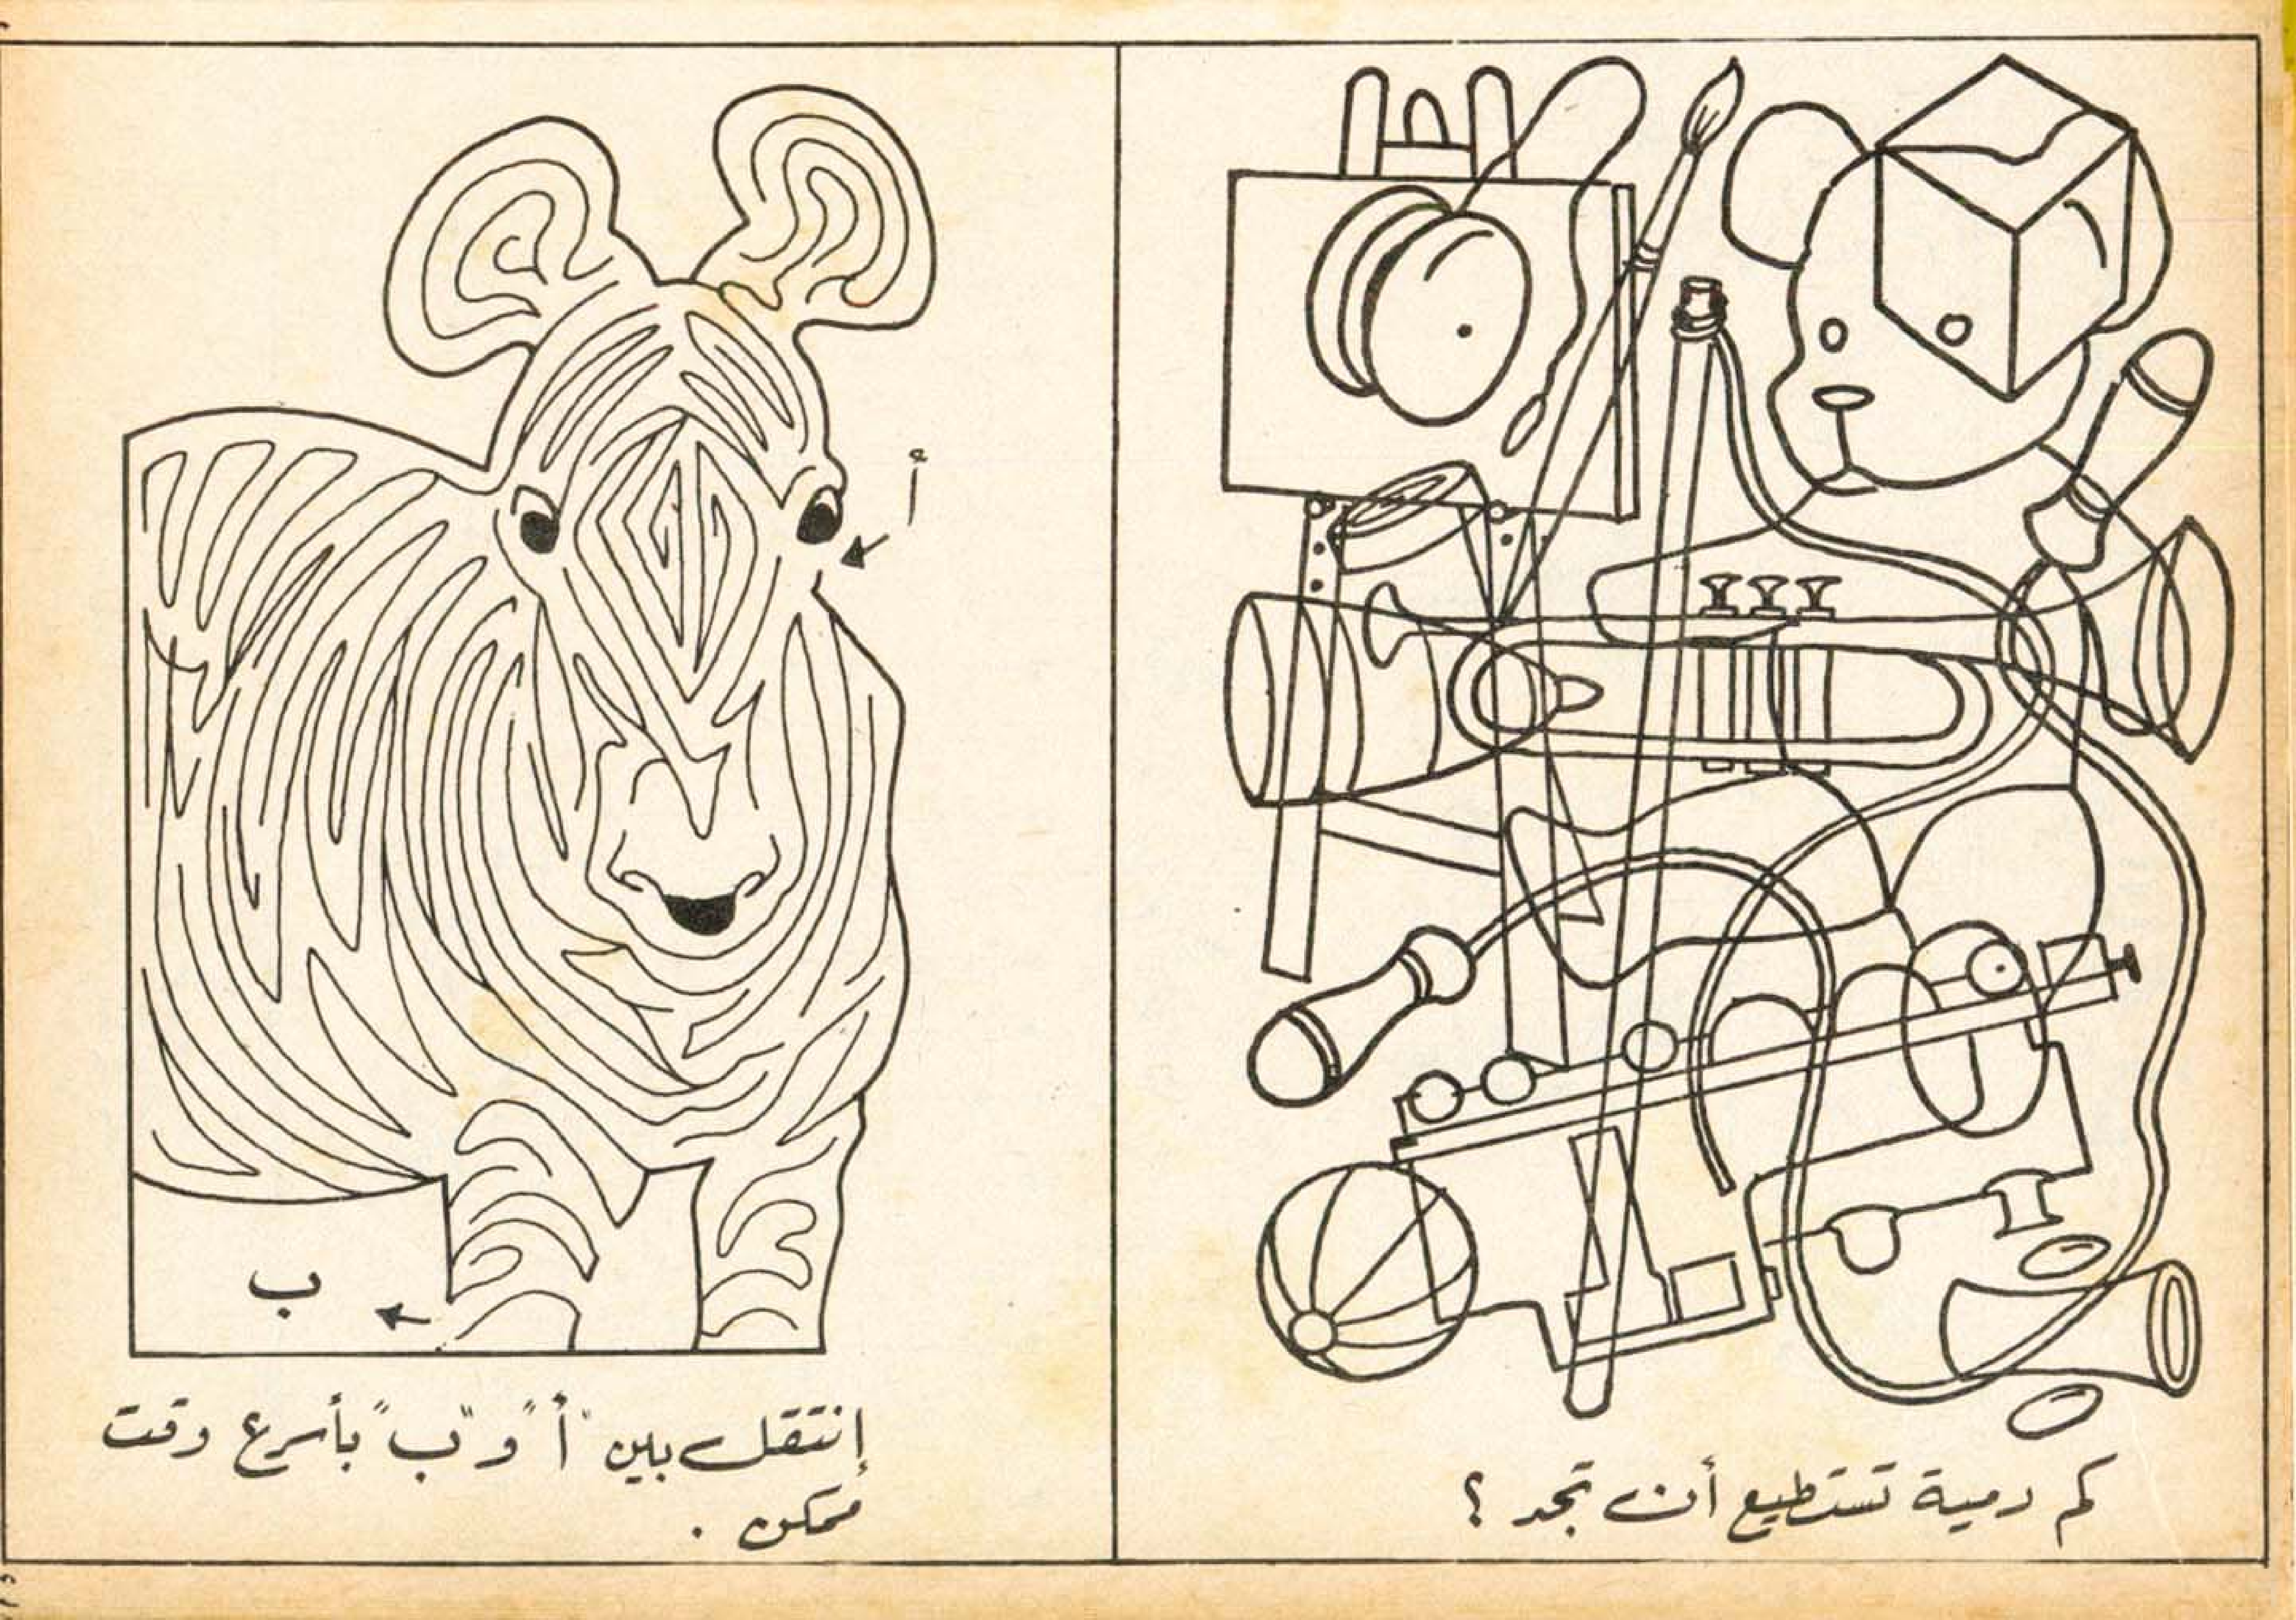 كم دمية تستطيع أن تجد ؟
أ
ب
إنتقل بين "أ" و "ب" بأسرع وقت
ممكن .